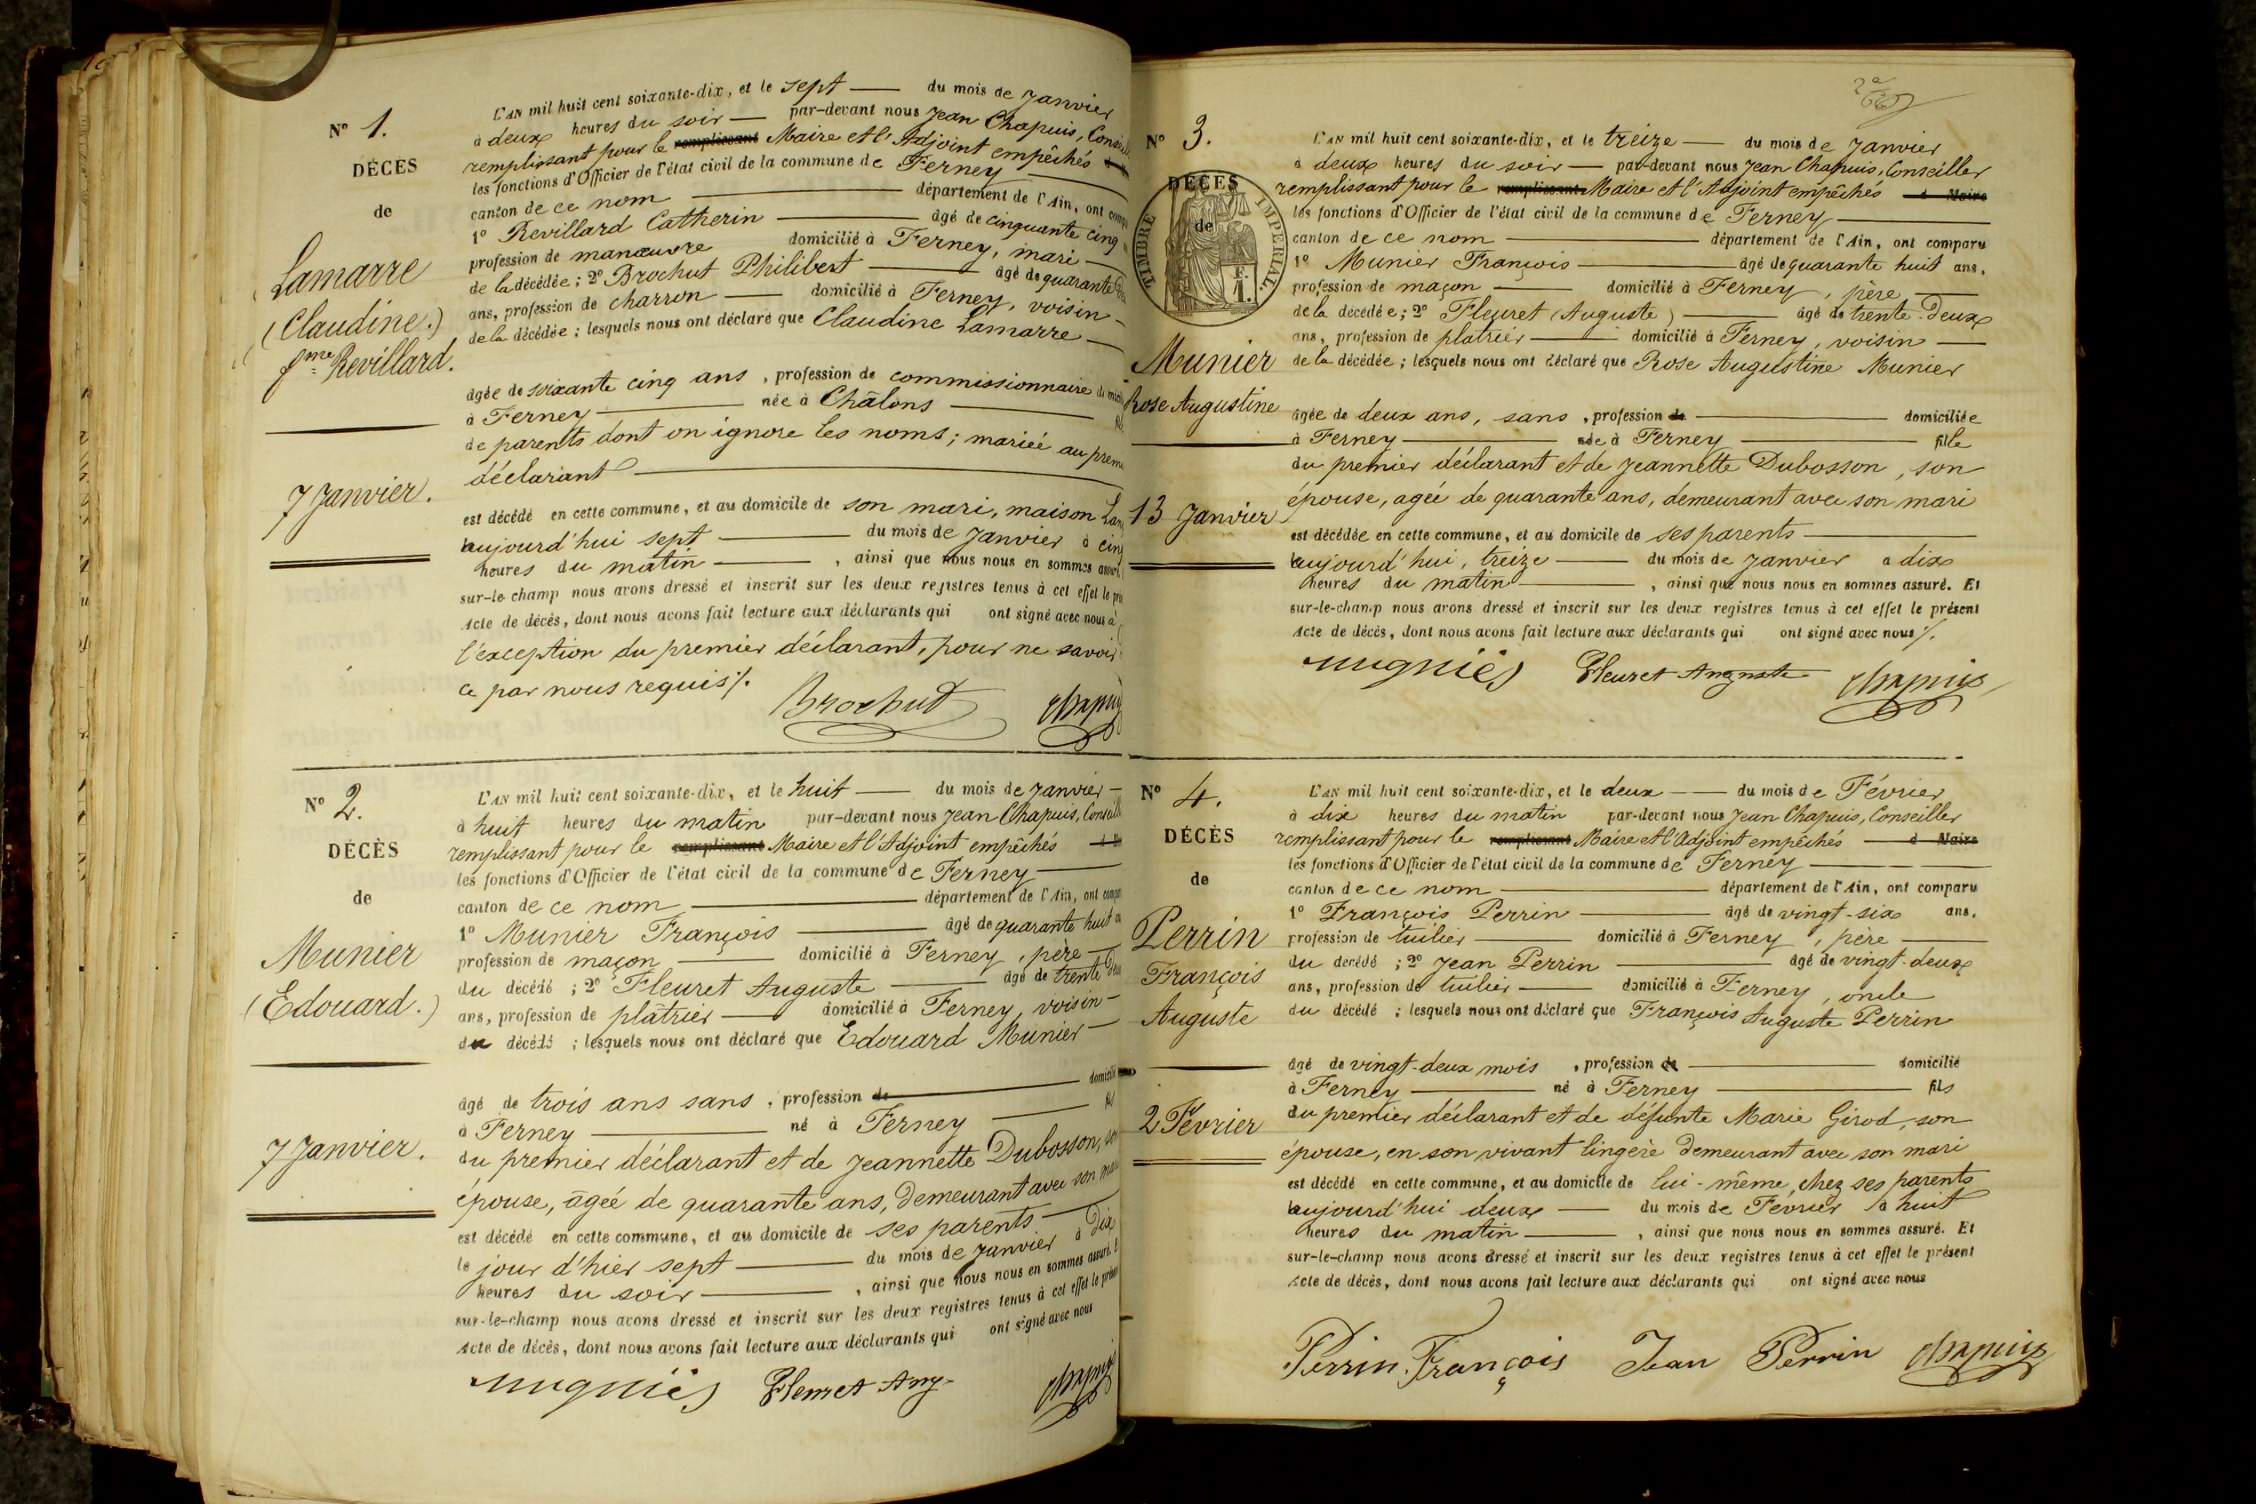 N° 1.
DÉCÈS
de
Lamarre
(Claudine.)
fme Revillard.
7 Janvier.
L'AN mil huit cent soixante-dix, et le sept du mois de Janvier
à deux heures du soir par-devant nous Jean Chapuis,
remplissant pour le remplissant Maire et l'Adjoint empêchés
les fonctions d'Officier de l'état civil de la commune de Ferney
canton de ce nom département de l'Ain, ont
1° Revillard Catherin âgé de cinquante cinq
profession de manœuvre domicilié à Ferney, mari
de la décédée ; 2° Brochut Philibert âgé de quarante
ans, profession de charron domicilié à Ferney, voisin
de la décédée ; lesquels nous ont déclaré que Claudine Lamarre
âgée de soixante cinq ans, profession de commissionnaire
à Ferney née à Châlons
de parents dont on ignore les noms ; mariée au
déclarant
est décédé en cette commune, et au domicile de son mari, maison
aujourd'hui sept du mois de Janvier à
heures du matin, ainsi que nous nous en sommes
sur-le champ nous avons dressé et inscrit sur les deux registres tenus à cet effet le
Acte de décès, dont nous avons fait lecture aux déclarants qui ont signé avec nous à
l'exception du premier déclarant, pour ne savoir
ce par nous requis ./.
Brochut Chapuis
N° 2.
DÉCÈS
de
Munier
(Edouard.)
7 Janvier.
L'AN mil huit cent soixante-dix, et le huit du mois de Janvier
à huit heures du matin par-devant nous Jean Chapuis,
remplissant pour le remplissant Maire et l'Adjoint empêchés
les fonctions d'Officier de l'état civil de la commune de Ferney
canton de ce nom département de l'Ain, ont
1° Munier François âgé de quarante huit
profession de maçon domicilié à Ferney, père
du décédé ; 2° Fleuret Auguste âgé de trente
ans, profession de plâtrier domicilié à Ferney, voisin
du décédé ; lesquels nous ont déclaré que Edouard Munier
âgé de trois ans sans, profession de
à Ferney né à Ferney
du premier déclarant et de Jeannette Dubosson,
épouse, âgée de quarante ans, demeurant avec son
est décédé en cette commune, et au domicile de ses parents
le jour d'hier sept du mois de Janvier à dix
heures du soir, ainsi que nous nous en sommes assuré.
sur-le-champ nous avons dressé et inscrit sur les deux registres tenus à cet effet le
Acte de décès, dont nous avons fait lecture aux déclarants qui ont signé avec nous
Mugnies Fleuret Aug. Chapuis
N° 3.
DÉCÈS
de
TIMBRE IMPÉRIAL.
F.
1.
Munier
Rose Augustine
13 Janvier
L'AN mil huit cent soixante-dix, et le treize du mois de Janvier
à deux heures du soir par-devant nous Jean Chapuis, Conseiller
remplissant pour le remplissant Maire et l'Adjoint empêchés d Maire
les fonctions d'Officier de l'état civil de la commune de Ferney
canton de ce nom département de l'Ain, ont comparu
1° Munier François âgé de quarante huit ans,
profession de maçon domicilié à Ferney, père
de la décédée ; 2° Fleuret (Auguste) âgé de trente-deux
ans, profession de platrier domicilié à Ferney, voisin
de la décédée ; lesquels nous ont déclaré que Rose Augustine Munier
âgée de deux ans, sans, profession de domiciliée
à Ferney née à Ferney fille
du premier déclarant et de Jeannette Dubosson, son
épouse, agée de quarante ans, demeurant avec son mari
est décédée en cette commune, et au domicile de ses parents
aujourd'hui, treize du mois de Janvier a dix
heures du matin, ainsi que nous nous en sommes assuré. Et
sur-le-champ nous avons dressé et inscrit sur les deux registres tenus à cet effet le présent
Acte de décès, dont nous avons fait lecture aux déclarants qui ont signé avec nous ./.
Mugnies Fleuret Auguste Chapuis
N° 4.
DÉCÈS
de
Perrin
François
Auguste
2 Février
L'AN mil huit cent soixante-dix, et le deux du mois de Février
à dix heures du matin par-devant nous Jean Chapuis, Conseiller
remplissant pour le remplissant Maire et l'Adjoint empêchés d Maire
les fonctions d'Officier de l'état civil de la commune de Ferney
canton de ce nom département de l'Ain, ont comparu
1° François Perrin âgé de vingt-six ans,
profession de tuilier domicilié à Ferney, père
du décédé ; 2° Jean Perrin âgé de vingt-deux
ans, profession de tuilier domicilié à Ferney, oncle
du décédé ; lesquels nous ont déclaré que François Auguste Perrin
âgé de vingt-deux mois, profession de domicilié
à Ferney né à Ferney fils
du premier déclarant et de défunte Marie Girod, son
épouse, en son vivant lingère demeurant avec son mari
est décédé en cette commune, et au domicile de lui-même, chez ses parents
aujourd'hui deux du mois de Février à huit
heures du matin, ainsi que nous nous en sommes assuré. Et
sur-le-champ nous avons dressé et inscrit sur les deux registres tenus à cet effet le présent
Acte de décès, dont nous avons fait lecture aux déclarants qui ont signé avec nous
Perrin François Jean Perrin Chapuis